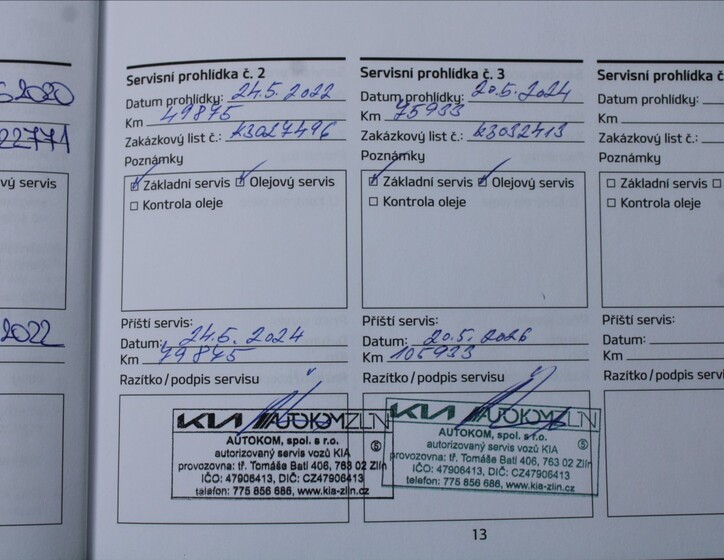 5 2020
22771
vý servis
2022
Servisní prohlídka č. 2
Datum prohlídky: 24.5. 2022
Km 49875
Zakázkový list č.: K3027496
Poznámky
Základní servis Olejový servis
Kontrola oleje
Příští servis:
Datum: 24.5. 2024
Km 79875
Razítko/podpis servisu
KIA AUTOKOMZLÍN
AUTOKOM, spol. s r.o.
autorizovaný servis vozů KIA
provozovna: tř. Tomáše Bati 406, 763 02 Zlín
IČO: 47906413, DIČ: CZ47906413
telefon: 775 856 686, www.kia-zlin.cz
5
Servisní prohlídka č. 3
Datum prohlídky: 20.5. 2024
Km 75933
Zakázkový list č.: K3032413
Poznámky
Základní servis Olejový servis
Kontrola oleje
Příští servis:
Datum: 20.5. 2026
Km 105933
Razítko/podpis servisu
KIA AUTOKOMZLÍN
AUTOKOM, spol. s r.o.
autorizovaný servis vozů KIA
provozovna: tř. Tomáše Bati 406, 763 02 Zlín
IČO: 47906413, DIČ: CZ47906413
telefon: 775 856 686, www.kia-zlin.cz
5
Servisní prohlídka č
Datum prohlídky:
Km
Zakázkový list č.:
Poznámky
Základní servis
Kontrola oleje
Příští servis:
Datum:
Km
Razítko/podpis servi
13